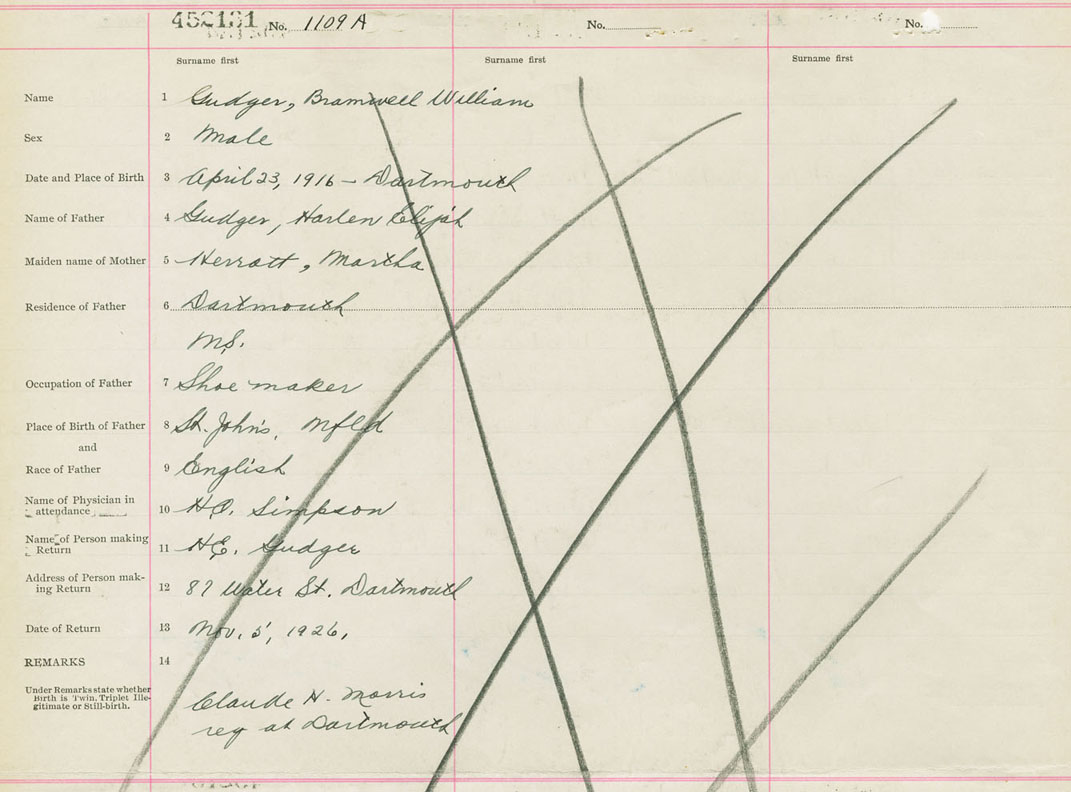 452131 No. 1109 A No. No.
Surname first Surname first Surname first
Name 1 Gudger, Bramwell William
Sex 2 Male
Date and Place of Birth 3 April 23, 1916 - Dartmouth
Name of Father 4 Gudger, Harlen Elijah
Maiden name of Mother 5 Herratt, Martha
Residence of Father 6 Dartmouth
N.S.
Occupation of Father 7 Shoe maker
Place of Birth of Father 8 St. John's, Nfld
and
Race of Father 9 English
Name of Physician in
attendance 10 H.O. Simpson
Name of Person making
Return 11 H.E. Gudger
Address of Person mak-
ing Return 12 87 Water St. Dartmouth
Date of Return 13 Nov. 5, 1926,
REMARKS 14
Under Remarks state whether
Birth is Twin, Triplet Ille-
gitimate or Still-birth.
Claude H. Morris
reg at Dartmouth